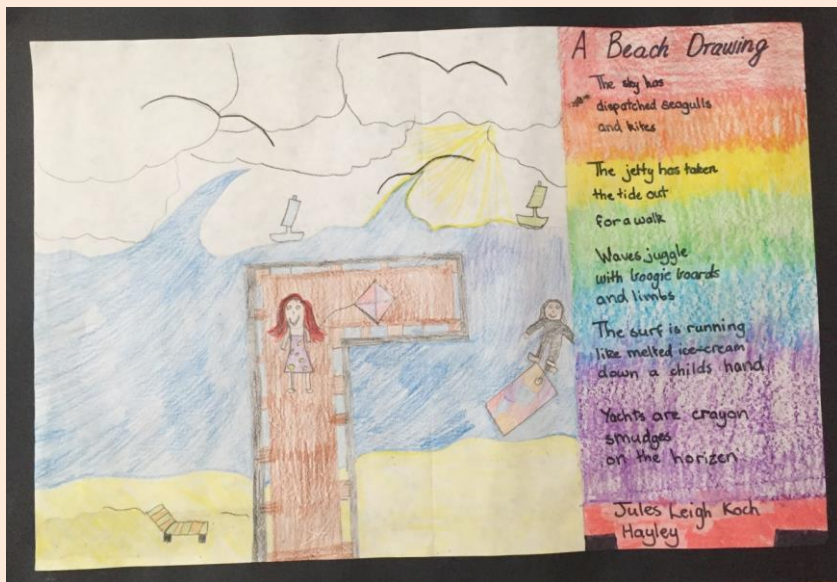 A Beach Drawing
The sky has
dispatched seagulls
and kites
The jetty has taken
the tide out
for a walk
Waves juggle
with boogie boards
and limbs
The surf is running
like melted ice-cream
down a childs hand
Yachts are crayon
smudges
on the horizen
Jules Leigh Koch
Hayley